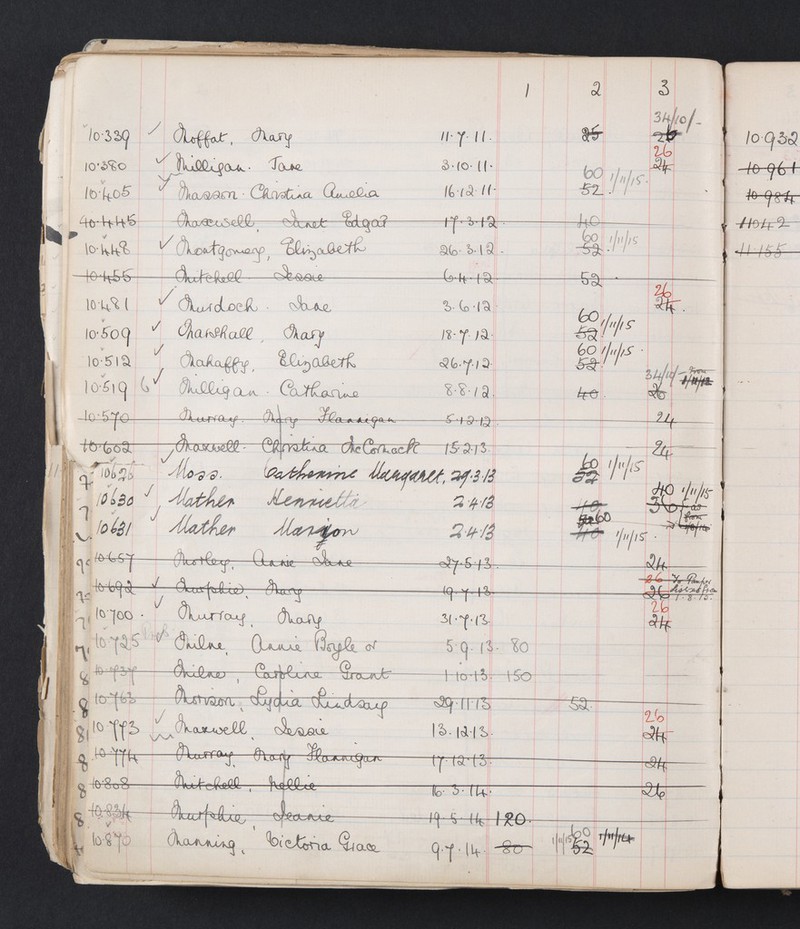 1 2 3
34/10/-
10·339 ✓ Moffat, Mary 11·7·11. 25 26
26
10·380 ✓ Milligan. Jane 3·10·11. 24
60 1/11/15.
10·405 ✓ Masson. Christina Amelia 16·12·11. 52
10·445 Maxwell, Janet Edgar 17·3·12 40
60 1/11/15
10·448 ✓ Montgomery, Elizabeth 26·3·12. 52
10·455 Mitchell Jessie 6·4·12 52
26
10·481 ✓ Murdoch. Jane 3·6·12 24.
60 1/11/15
10·509 ✓ Marshall, Mary 18·7·12. 52
60 1/11/15
10·512 ✓ Mahaffy, Elizabeth 26·7·12 52
34/10/- from 1/11/12
10·519 6 ✓ Milligan. Catharine 8·8·12. 40 26
10·570 Murray. Mary Flannigan 5·12·12 24
10·602 Maxwell. Christina McCormack 15·2·13. 24
60 1/11/15
10626 Moss. Catherine Margaret. 29.3.13 52
40 1/11/15
10630 ✓ Mather Henrietta 2·4·13 40 36
60
10631 ✓ Mather Marion 2·4·13 40 1/11/15.
10·657 Morley, Annie Jane 27·5·13. 24
26
10·692 ✓ Murphie, Mary 19·7·13. 26 1·8·15.
26
10·700 · ✓ Murray, Mary 31·7·13. 24
10·725 Milne, Annie Boyle or 5·9·13. 80
10·737 Milne, Caroline Grant 1·10·13. 150
10·763 Morison, Lydia Lindsay 29·11·13 52.
26
10·773 ✓ Maxwell, Jessie 13·12·13. 24
10·774 Murray, Mary Flannigan 17·12·13. 24
10·808 Mitchell, Nellie 16·3·14. 26
10·834 Murphie, Jeanie 19·5·14 120.
60 1/11/15
10·870 Manning, Victoria Grace 9·7·14. 80 52
10·932
10·961
10·984
11042
11·155